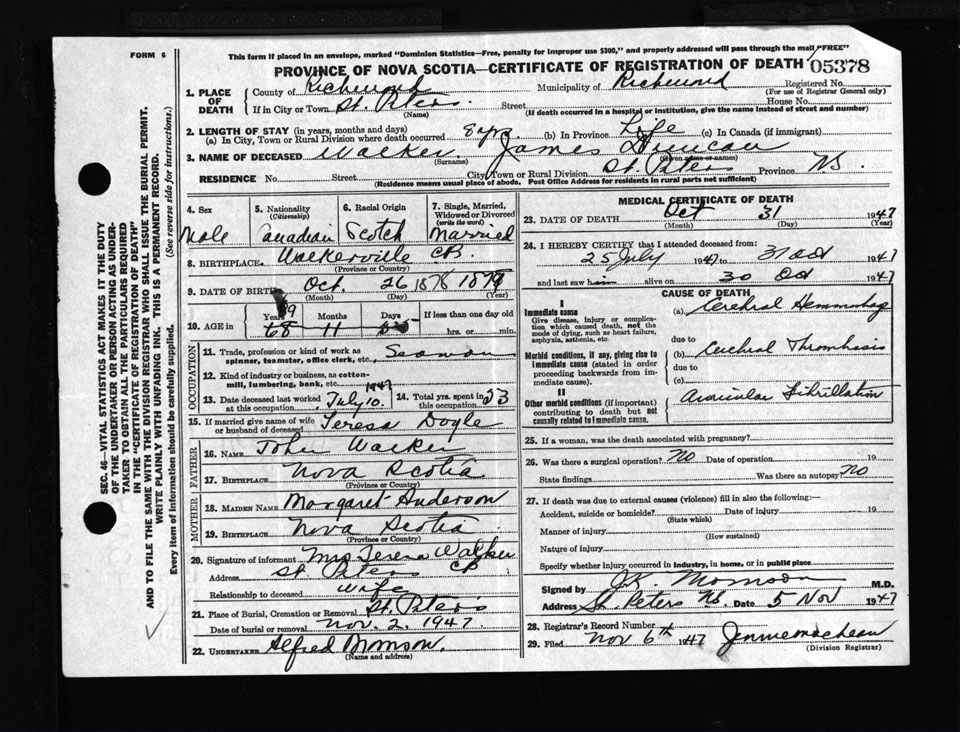 FORM 6
This form if placed in an envelope, marked "Dominion Statistics—Free, penalty for improper use $300," and properly addressed will pass through the mail "FREE"
PROVINCE OF NOVA SCOTIA—CERTIFICATE OF REGISTRATION OF DEATH 05378
SEC. 46—VITAL STATISTICS ACT MAKES IT THE DUTY
OF THE UNDERTAKER OR PERSON ACTING AS UNDER-
TAKER TO OBTAIN ALL THE PARTICULARS REQUIRED
IN THE "CERTIFICATE OF REGISTRATION OF DEATH"
AND TO FILE THE SAME WITH THE DIVISION REGISTRAR WHO SHALL ISSUE THE BURIAL PERMIT.
WRITE PLAINLY WITH UNFADING INK. THIS IS A PERMANENT RECORD.
Every item of information should be carefully supplied. (See reverse side for instructions.)
1. PLACE OF DEATH
County of Richmond Municipality of Richmond Registered No.
(For use of Registrar General only)
If in City or Town St. Peters Street House No.
(Name) (If death occurred in a hospital or institution, give the name instead of street and number)
2. LENGTH OF STAY (in years, months and days)
(a) In City, Town or Rural Division where death occurred 8 yrs. (b) In Province Life (c) In Canada (if immigrant)
3. NAME OF DECEASED Walker James Duncan
(Surname) (Given name or names)
RESIDENCE No. Street City, Town or Rural Division St. Peters Province N.S
(Residence means usual place of abode. Post Office Address for residents in rural parts not sufficient)
4. Sex Male
5. Nationality (Citizenship) Canadian
6. Racial Origin Scotch
7. Single, Married, Widowed or Divorced (write the word) Married
8. BIRTHPLACE Walkerville C.B.
(Province or Country)
9. DATE OF BIRTH Oct. 26 1878 1879
(Month) (Day) (Year)
10. AGE in Years 68 Months 11 Days If less than one day old hrs. or min.
OCCUPATION
11. Trade, profession or kind of work as spinner, teamster, office clerk, etc. Seaman
12. Kind of industry or business, as cotton-mill, lumbering, bank, etc.
13. Date deceased last worked at this occupation July 10. 1947
14. Total yrs. spent in this occupation 53
15. If married give name of wife or husband of deceased Teresa Doyle
FATHER
16. NAME John Walker
17. BIRTHPLACE Nova Scotia
(Province or Country)
MOTHER
18. MAIDEN NAME Margaret Anderson
19. BIRTHPLACE Nova Scotia
(Province or Country)
20. Signature of informant Mrs Teresa Walker
Address St. Peters CB
Relationship to deceased wife
21. Place of Burial, Cremation or Removal St. Peter's
Date of burial or removal Nov. 2, 1947
22. UNDERTAKER Alfred Morrison
(Name and address)
MEDICAL CERTIFICATE OF DEATH
23. DATE OF DEATH Oct 31 1947
(Month) (Day)
24. I HEREBY CERTIFY that I attended deceased from:
25 July 1947 to 31 Oct 1947
and last saw h alive on 30 Oct 1947
CAUSE OF DEATH
I
Immediate cause
Give disease, injury or complication which caused death, not the mode of dying, such as heart failure, asphyxia, asthenia, etc.
(a) Cerebral Hemmorhag
due to
Morbid conditions, if any, giving rise to immediate cause (stated in order proceeding backwards from immediate cause).
(b) Cerebral Thrombosis
due to
(c)
II
Other morbid conditions (if important) contributing to death but not causally related to immediate cause.
Auricular Fibrillation
25. If a woman, was the death associated with pregnancy?
26. Was there a surgical operation? No Date of operation 19
State findings Was there an autopsy? No
27. If death was due to external causes (violence) fill in also the following:—
Accident, suicide or homicide? Date of injury 19
(State which)
Manner of injury
(How sustained)
Nature of injury
Specify whether injury occurred in industry, in home, or in public place
Signed by J.K. Morrison M.D.
Address St. Peters NS. Date 5 Nov 1947
28. Registrar's Record Number
29. Filed Nov 6th 1947 Jennie MacLean
(Division Registrar)